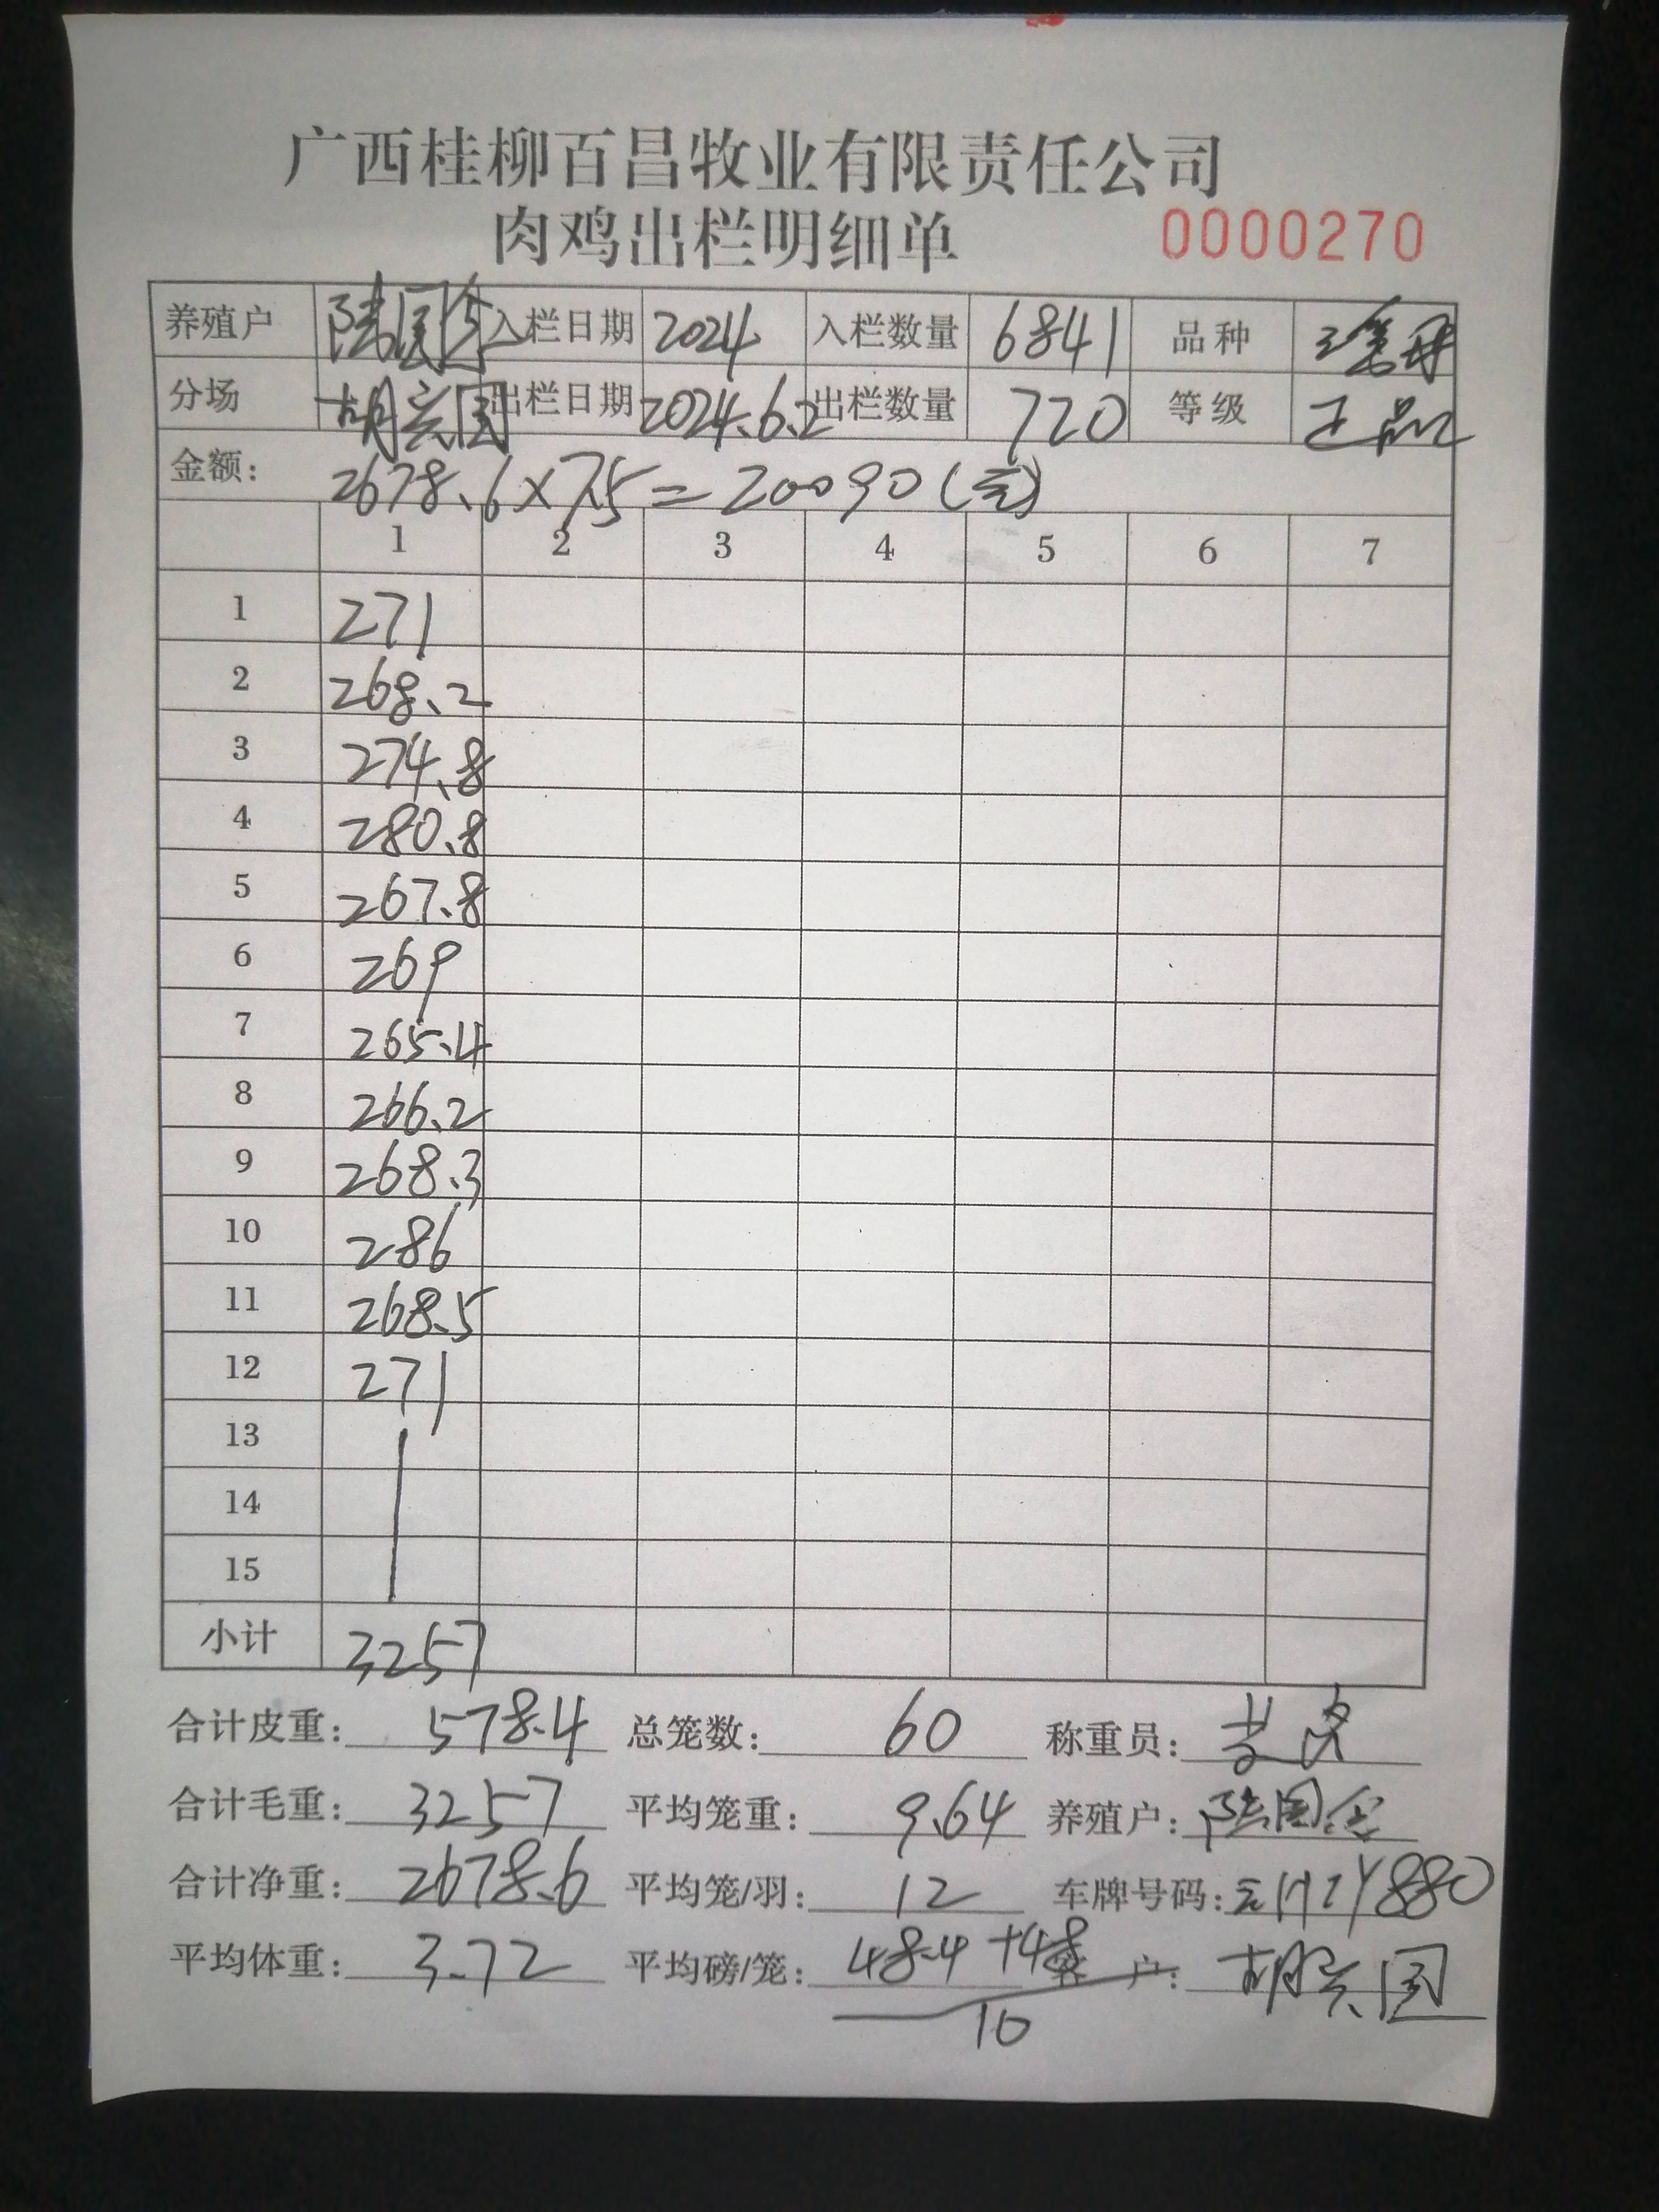 广西桂柳百昌牧业有限责任公司
肉鸡出栏明细单 0000270
养殖户 陆国 入栏日期 2024 入栏数量 6841 品种
分场 胡兴国 出栏日期 2024.6.2 出栏数量 720 等级 正品
金额: 2678.6×7.5=20090(元)
1 2 3 4 5 6 7
1 271
2 268.2
3 274.8
4 280.8
5 267.8
6 269
7 265.4
8 266.2
9 268.3
10 286
11 268.5
12 271
13
14
15
小计 3257
合计皮重: 578.4 总笼数: 60 称重员:
合计毛重: 3257 平均笼重: 9.64 养殖户: 陆国
合计净重: 2678.6 平均笼/羽: 12 车牌号码: Y880
平均体重: 3.72 平均磅/笼: 48.4+48 客户: 胡兴国
10